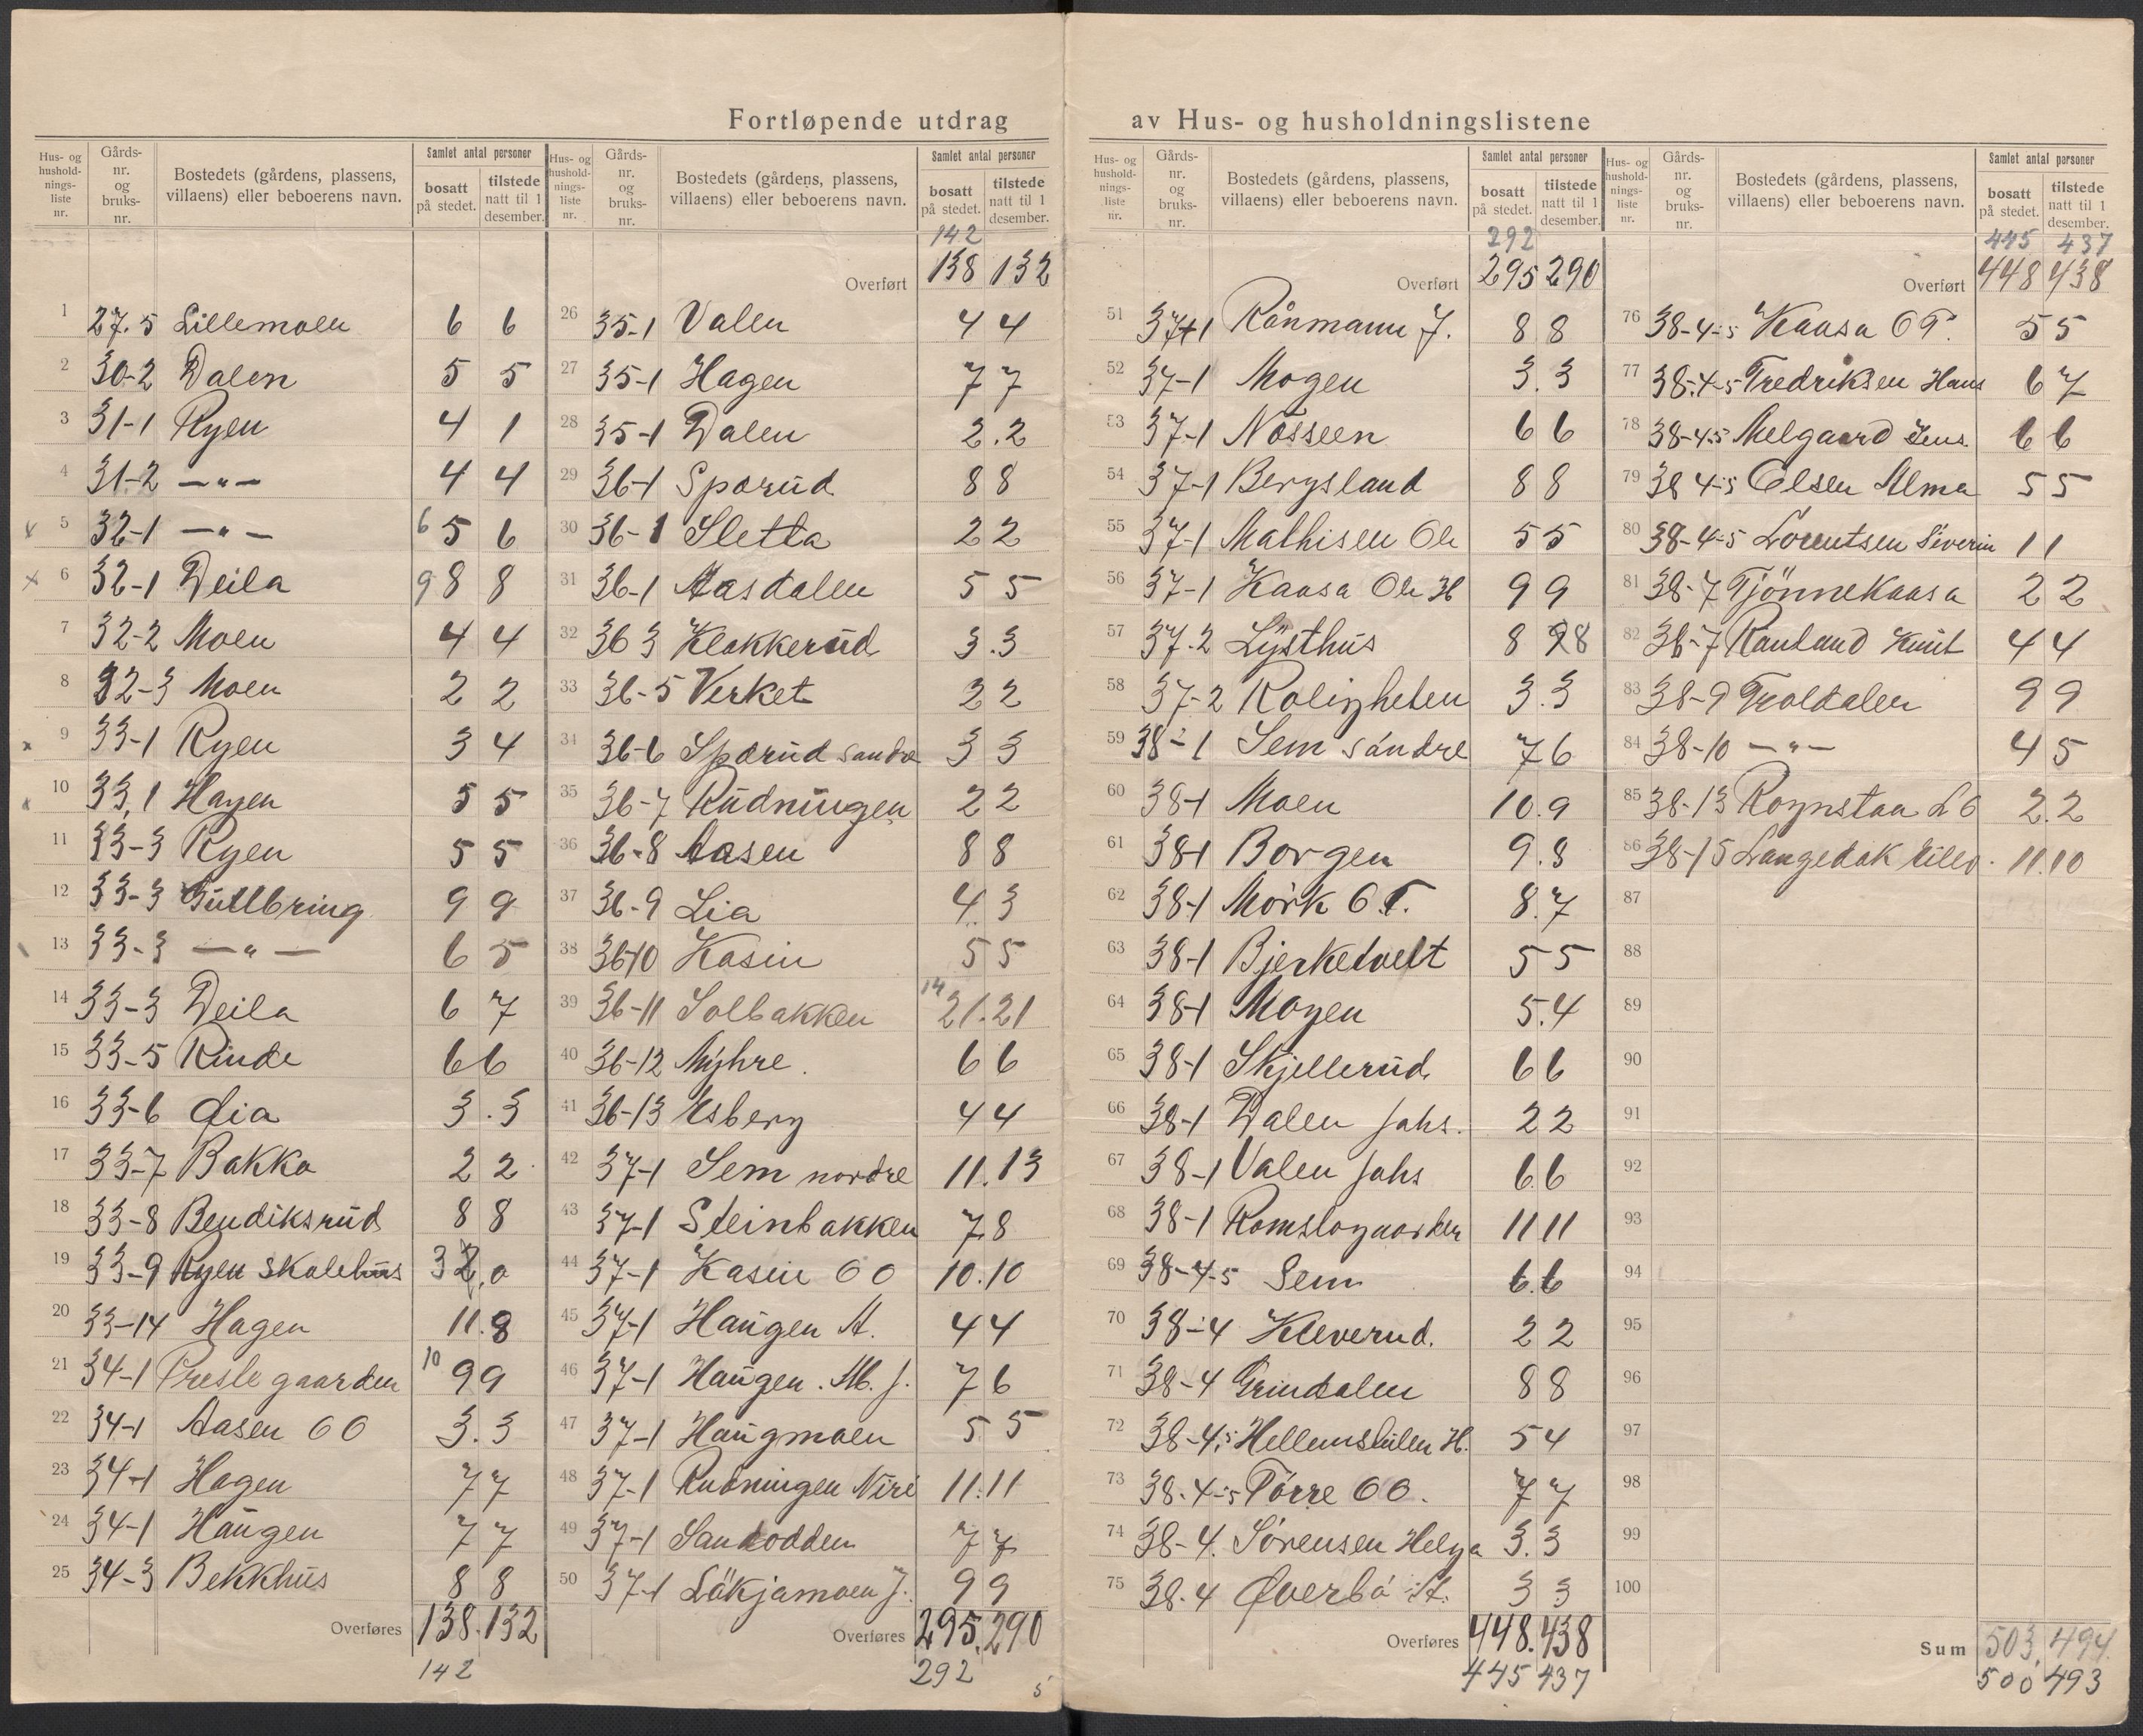 Fortløpende utdrag av Hus- og husholdningslistene
Hus- og husholdnings-liste nr. Gårds-nr. og bruks-nr. Bostedets (gårdens, plassens, villaens) eller beboerens navn. Samlet antal personer bosatt på stedet. tilstede natt til 1 desember.
1 27.5 Lillemoen 6 6
2 30-2 Dalen 5 5
3 31-1 Ryen 4 1
4 31-2 —"— 4 4
x 5 32-1 —"— 6 5 6
x 6 32-1 Deila 9 8 8
7 32-2 Moen 4 4
8 32-3 Moen 2 2
x 9 33-1 Ryen 3 4
x 10 33,1 Hagen 5 5
11 33-3 Ryen 5 5
12 33-3 Gullbring 9 9
13 33-3 —"— 6 5
14 33-3 Deila 6 7
15 33-5 Rinde 6 6
16 33-6 Lia 3.3
17 33-7 Bakka 2 2
18 33-8 Bendiksrud 8 8
19 33-9 Ryen skolehus 3 2,0
20 33-14 Hagen 11.8
21 34-1 Prestegaarden 10 9 9
22 34-1 Aasen O O 3.3
23 34-1 Hagen 7 7
24 34-1 Haugen 7 7
25 34-3 Bekkhus 8 8
Overføres 138.132
142
Hus- og husholdnings-liste nr. Gårds-nr. og bruks-nr. Bostedets (gårdens, plassens, villaens) eller beboerens navn. Samlet antal personer bosatt på stedet. tilstede natt til 1 desember.
142
Overført 138 132
26 35-1 Valen 4 4
27 35-1 Hagen 7 7
28 35-1 Dalen 2.2
29 36-1 Sporud 8 8
30 36-1 Sletta 2 2
31 36-1 Aasdalen 5 5
32 36 3 Klokkerud 3.3
33 36-5 Verket 2 2
34 36-6 Sporud søndre 3 3
35 36-7 Rudningen 2 2
36 36-8 Aasen 8 8
37 36-9 Lia 4.3
38 36-10 Kasin 5 5
39 36-11 Solbakken 14 21.21
40 36-12 Myhre 6 6
41 36-13 Esberg 4 4
42 37-1 Sem nordre 11.13
43 37-1 Steinbakken 7 8
44 37-1 Kasin O O 10.10
45 37-1 Haugen A. 4 4
46 37-1 Haugen M. J. 7 6
47 37-1 Haugmoen 5 5
48 37-1 Rudningen Niri 11.11
49 37-1 Sandodden 7 7
50 37-1 Løkjamoen J. 9 9
Overføres 295.290
292
5
Hus- og husholdnings-liste nr. Gårds-nr. og bruks-nr. Bostedets (gårdens, plassens, villaens) eller beboerens navn. Samlet antal personer bosatt på stedet. tilstede natt til 1 desember.
292
Overført 295 290
51 37-1 Rånmann J. 8 8
52 37-1 Mogen 3.3
53 37-1 Nösseen 6 6
54 37-1 Bergsland 8 8
55 37-1 Mathisen Ole 5 5
56 37-1 Kaasa Ole H 9 9
57 37.2 Lysthus 8 9 8
58 37-2 Roligheten 3.3
59 38-1 Sem søndre 7 6
60 38-1 Moen 10.9
61 38-1 Borgen 9.8
62 38-1 Mørk O.T. 8.7
63 38-1 Bjerketvelt 5 5
64 38-1 Mogen 5.4
65 38-1 Skjellerud 6 6
66 38-1 Dalen Johs. 2 2
67 38-1 Valen Johs 6.6
68 38-1 Romslogaarden 11 11
69 38-4-5 Sem 6.6
70 38-4 Kleverud. 2 2
71 38-4 Grindalen 8 8
72 38-4,5 H. 5 4
73 38.4-5 Tørre O O. 7 7
74 38-4. Sørensen Helga 3.3
75 38.4 Øverbø A. 3 3
Overføres 448.438
445 437
Hus- og husholdnings-liste nr. Gårds-nr. og bruks-nr. Bostedets (gårdens, plassens, villaens) eller beboerens navn. Samlet antal personer bosatt på stedet. tilstede natt til 1 desember.
445 437
Overført 448 438
76 38-4-5 Kaasa O T. 5 5
77 38-4-5 Fredriksen Hans 6 7
78 38-4-5 Melgaard Jens. 6 6
79 38 4-5 Olsen Alma 5 5
80 38-4-5 Lorentsen Siverin 1 1
81 38-7 Tjönnekaasa 2 2
82 38-7 Rauland Knut 4 4
83 38-9 Troldalen 9 9
84 38-10 —"— 4 5
85 38-13 Rognstaa L O 2.2
86 38-15 Langedok 11.10
87
88
89
90
91
92
93
94
95
96
97
98
99
100
Sum 503,494.
500 493